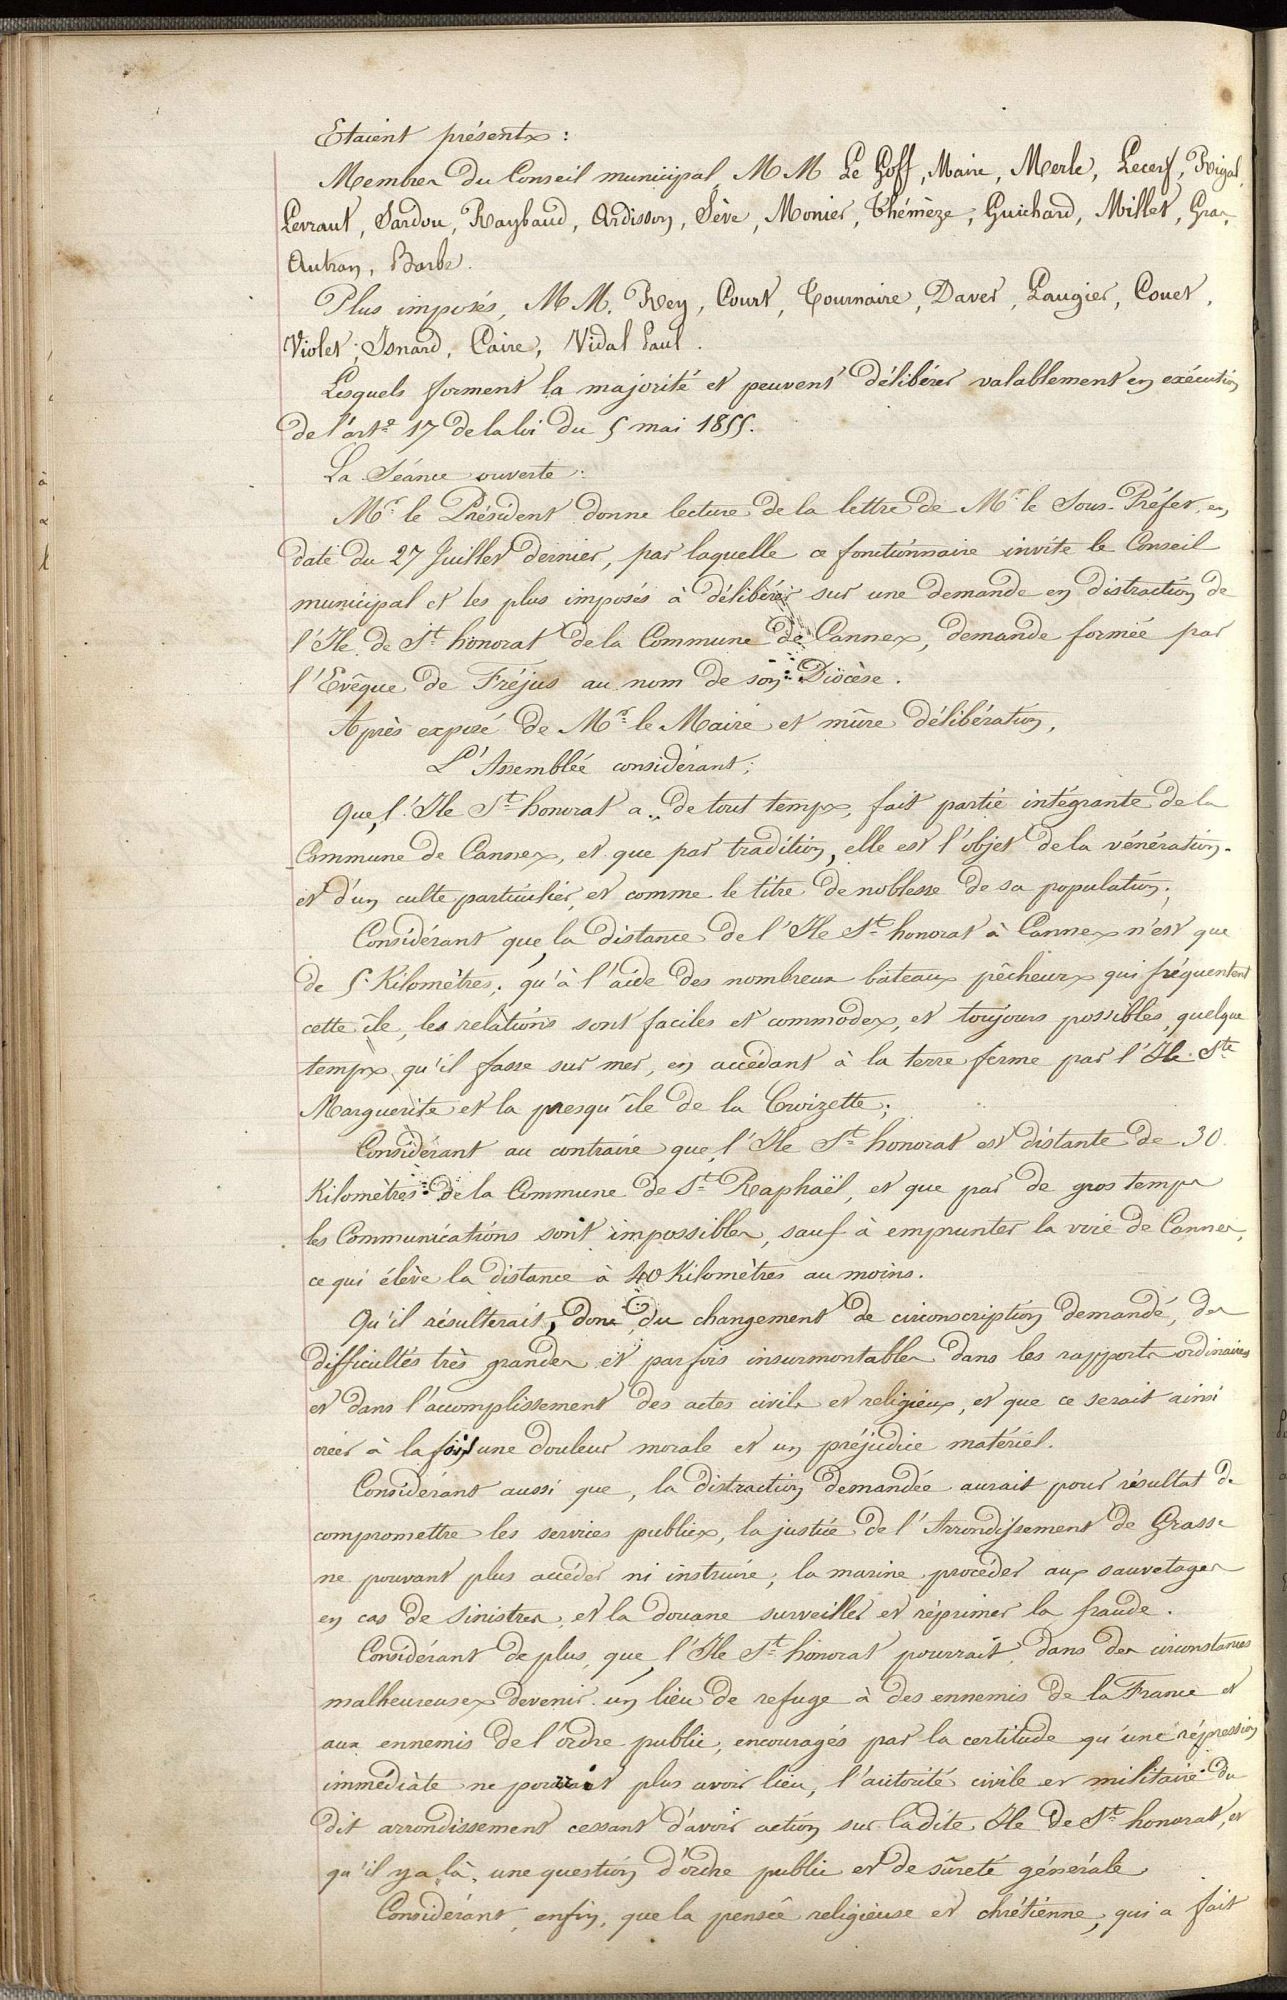 Etaient présents :
Membres du Conseil municipal, M M Le Goff, Maire, Merle, Lecerf, Rigal,
Levrant, Sardou, Raybaud, Ardisson, Sève, Monier, Thémèze, Guichard, Millet, Gras,
Autran, Barbe.
Plus imposés, M M. Rey, Court, Tournaire, Daver, Laugier, Couet,
Violet, Isnard, Caire, Vidal Paul.
Lesquels forment la majorité et peuvent délibérer valablement en exécution
de l'arte 17 de la loi du 5 mai 1855.
La Séance ouverte :
Mr. le Président donne lecture de la lettre de Mr. le Sous-Préfet, en
date du 27 Juillet dernier, par laquelle ce fonctionnaire invite le Conseil
municipal et les plus imposés à délibérer sur une demande en distraction de
l'Ile de St. honorat de la Commune de Cannes, demande formée par
l'Evêque de Fréjus au nom de son Diocèse.
Après exposé de Mr. le Maire et mûre délibération,
L'Assemblée considérant ;
Que, l'Ile St. honorat a de tout temps, fait partie intégrante de la
Commune de Cannes, et que par tradition, elle est l'objet de la vénération
et d'un culte particulier, et comme le titre de noblesse de sa population ;
Considérant que, la distance de l'Ile St. honorat à Cannes n'est que
de 5 Kilomètres ; qu'à l'aide des nombreux bateaux pêcheurs qui fréquentent
cette île, les relations sont faciles et commodes, et toujours possibles, quelque
temps qu'il fasse sur mer, en accédant à la terre ferme par l'Ile Ste
Marguerite et la presqu'île de la Croizette ;
Considérant au contraire que, l'Ile St. honorat est distante de 30
Kilomètres de la Commune de St. Raphaël, et que par de gros temps
les Communications sont impossibles, sauf à emprunter la voie de Cannes,
ce qui élève la distance à 40 Kilomètres au moins.
Qu'il résulterait, donc, du changement de circonscription demandé, des
difficultés très grandes et parfois insurmontables dans les rapports ordinaires
et dans l'accomplissement des actes civils et religieux, et que ce serait ainsi
créer à la fois une douleur morale et un préjudice matériel.
Considérant aussi que, la distraction demandée aurait pour résultat de
compromettre les services publics, la justice de l'Arrondissement de Grasse
ne pouvant plus accéder ni instruire ; la marine procéder aux sauvetages
en cas de sinistres, et la douane surveiller et réprimer la fraude.
Considérant de plus, que, l'Ile St. honorat pourrait, dans des circonstances
malheureuses devenir un lieu de refuge à des ennemis de la France et
aux ennemis de l'ordre public, encouragés par la certitude qu'une répression
immédiate ne pourrait plus avoir lieu, l'autorité civile et militaire du
dit arrondissement cessant d'avoir action sur ladite Ile de St. honorat, et
qu'il y a là, une question d'ordre public et de sûreté générale.
Considérant, enfin, que la pensée religieuse et chrétienne, qui a fait